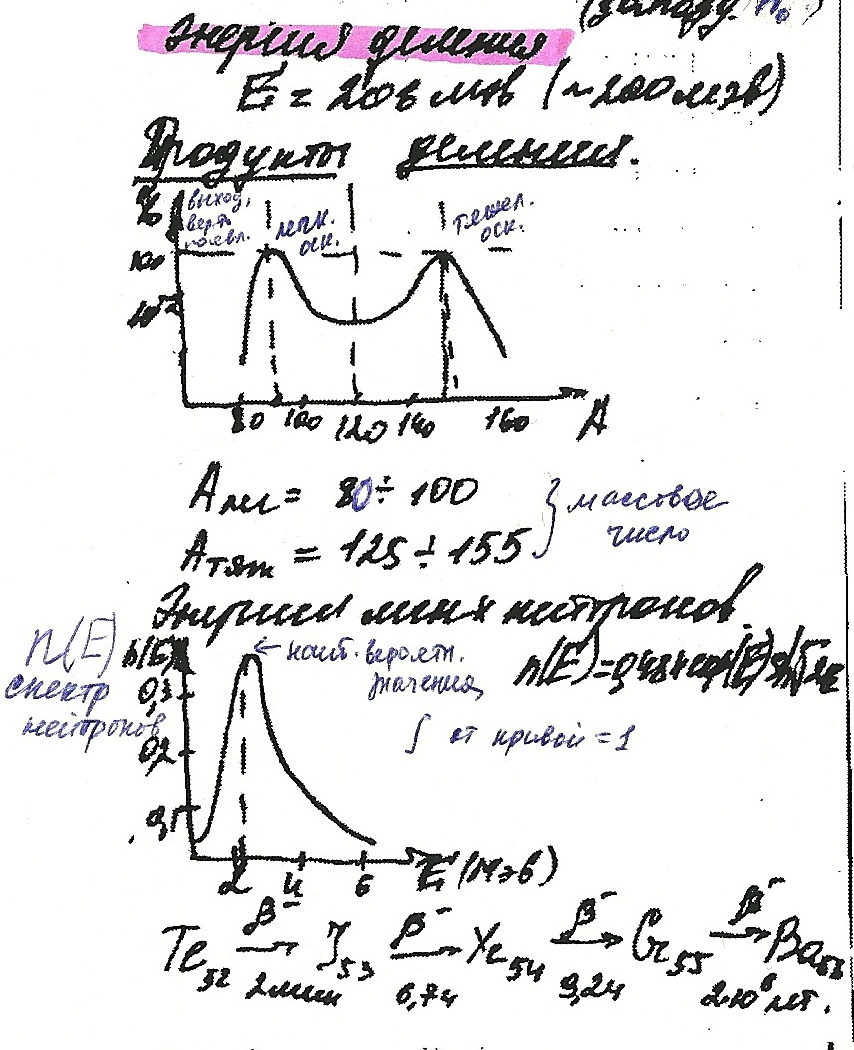 (запазд. n₀)
Энергия деления
E = 208 мэв (~200 мэв)
Продукты деления.
%
выход,
верт.
появл.
легк.
оск.
тяжел.
оск.
100
10⁻²
80 100 120 140 160 A
Aлег = 80 ÷ 100
Aтяж = 125 ÷ 155
} массовое
число
Энергия мгн нейтронов.
n(E)
спектр
нейтронов
n(E)
← наиб. вероятн.
значения
n(E)=0,484 exp(-E) sh√2E
∫ от кривой = 1
0,3
0,2
0,1
2 4 6 E (Мэв)
Te₅₂ β⁻→ 2 мин J₅₃ β⁻→ 6,7ч Xe₅₄ β⁻→ 9,2ч Cs₅₅ β⁻→ 2·10⁶ лт. Ba₅₆